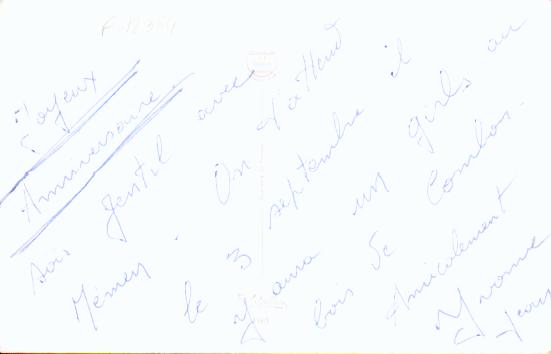 Joyeux
Anniversaire
sois gentil avec
Mémer. On t'attend
le 3 septembre il
y aura un girls au
bois de Combos.
Amicalement
Yvonne